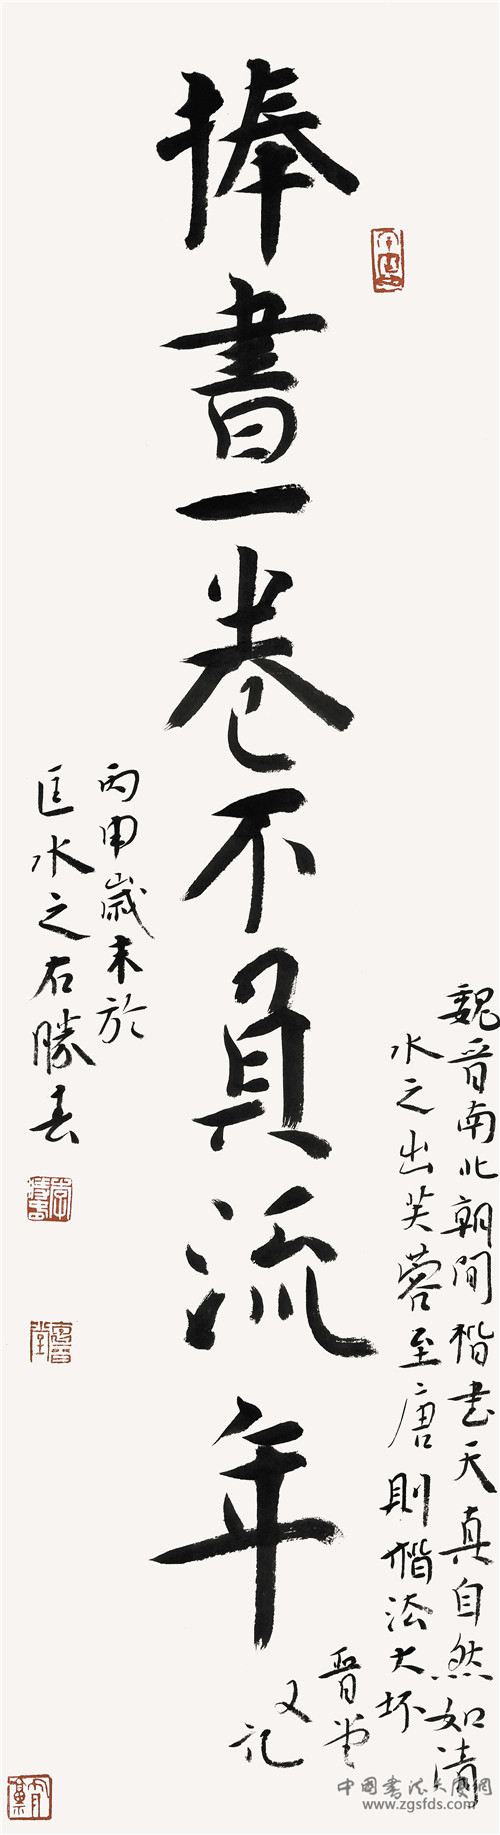 捧書一卷不負流年
丙申歲末於
匡水之右勝春
魏晋南北朝间楷书天真自然如清
水之出芙蓉至唐則楷法大坏
晋堂
又記
中國書法大廈網
www.zgsfds.com